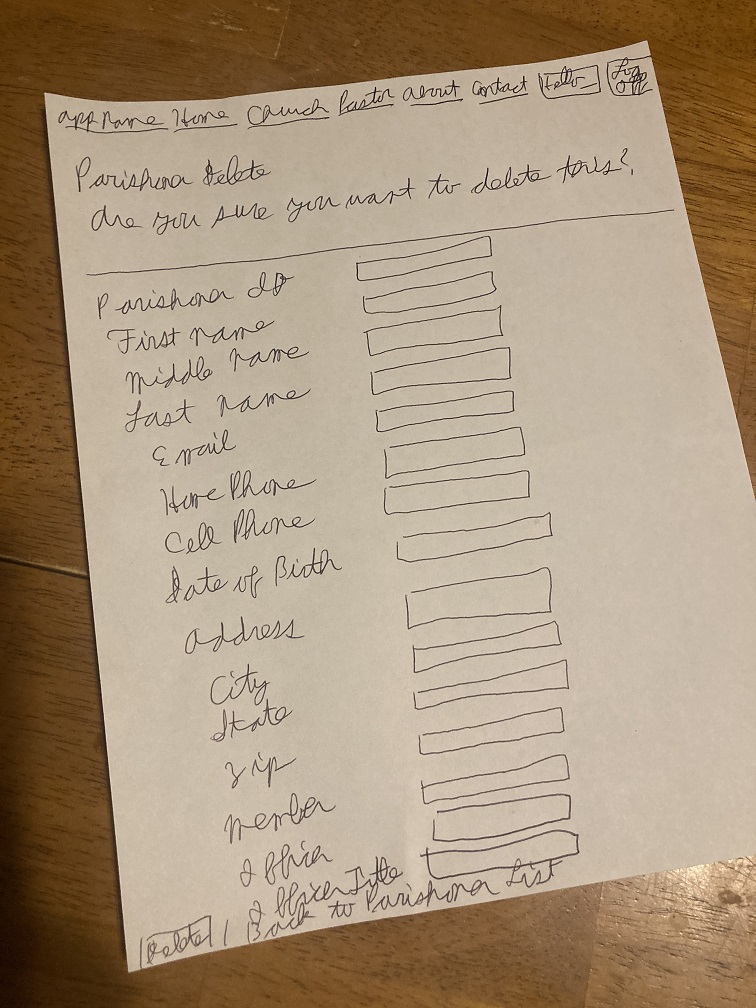 app name Home Church Pastor about Contact Hello Log off
Parishona Delete
Are you sure you want to delete this?
Parishona ID
First name
Middle name
Last name
Email
Home Phone
Cell Phone
Date of Birth
address
City
State
zip
member
Officer
Officer Title
Delete | Back to Parishona List